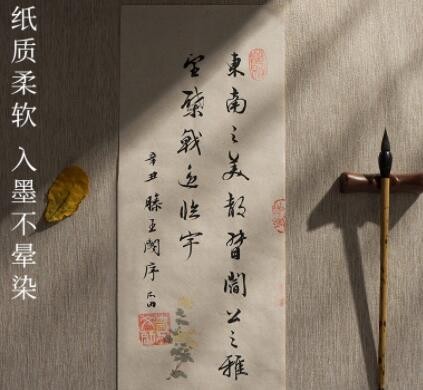 纸质柔软 入墨不晕染
東南之美都督閻公之雅
望棨戟遥临宇
辛丑 滕王閣序